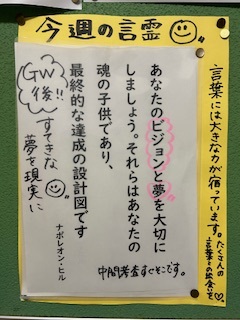 今週の言霊
言葉には大きな力が宿っています。たくさんの
言葉との出会いを
あなたのビジョンと夢を大切に
しましょう。それらはあなたの
魂の子供であり、
最終的な達成の設計図です
ナポレオン・ヒル
中間考査すぐそこです。
GW
後!!
すてきな
夢を現実に